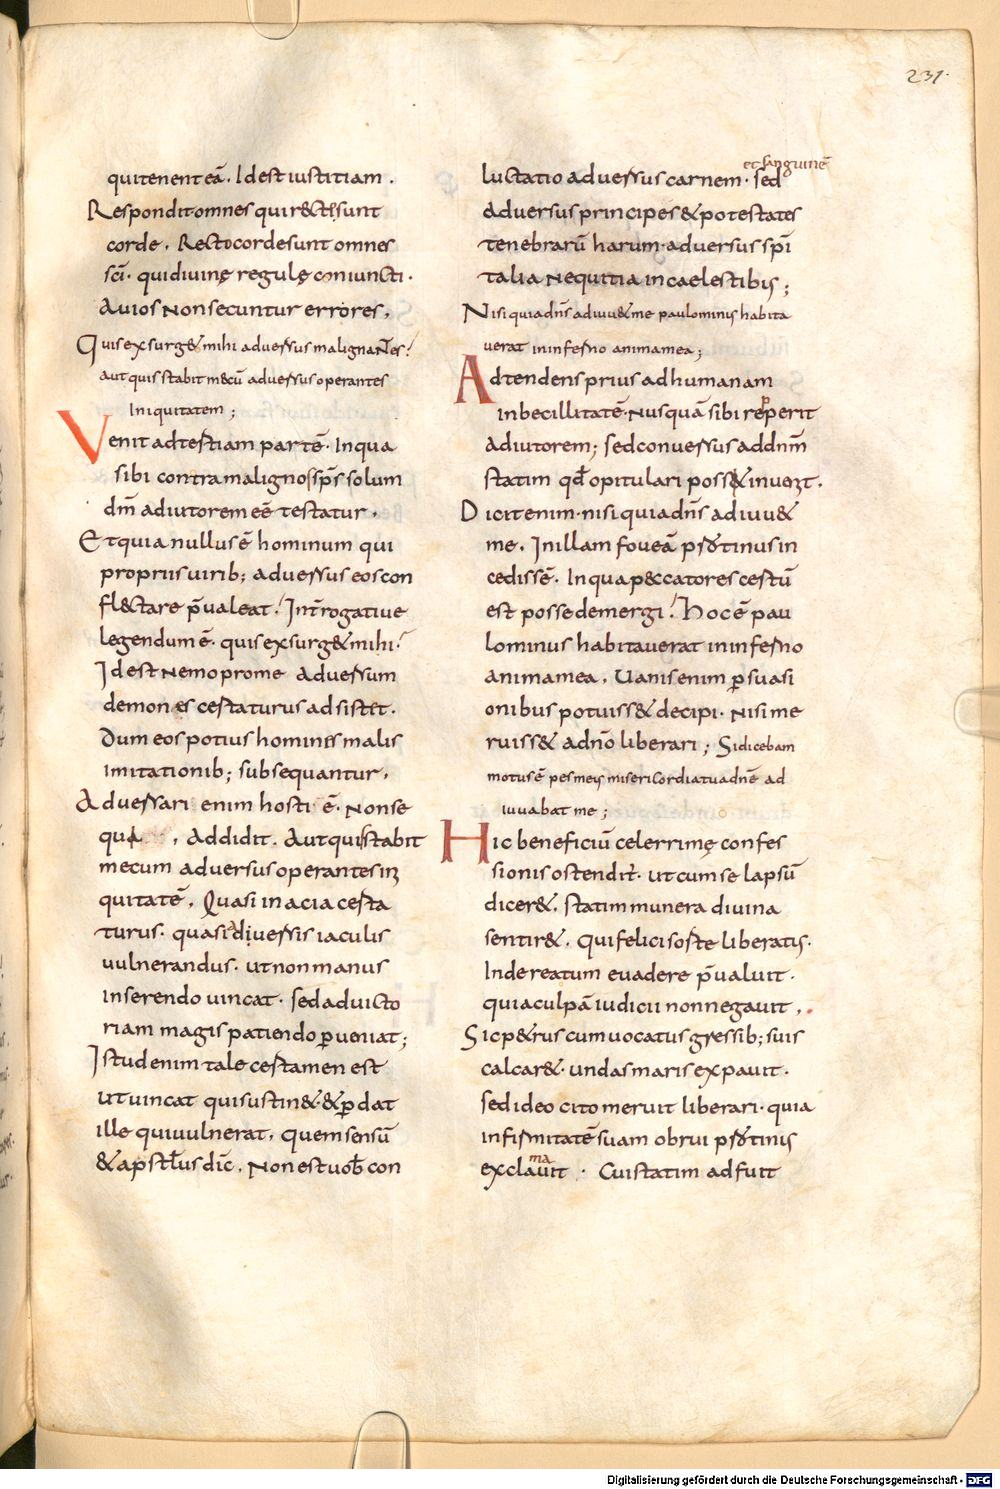 231.
qui tenent eā. Id est iustitiam.
Respondit omnes qui r&cti sunt
corde. Recto corde sunt omnes
sc̄i. qui diuinę regulę coniuncti.
Auios non secuntur errores.
Quis exsurg& mihi aduersus malignantes?
aut quis stabit mecū aduersus operantes
iniquitatem;
Venit ad tertiam partē. In qua
sibi contra malignos sp̄s solum
dm̄ adiutorem eē testatur.
Et quia nullus ē hominum qui
propriis uirib; aduersus eos con
fl&ctare p̄ualeat? Int̄rogatiue
legendum ē. quis exsurg& mihi?
Id est nemo pro me aduersum
demones certaturus adsistet.
Dum eos potius homines malis
imitationib; subsequantur.
Aduersari enim hosti ē. Non se
qui. Addidit. Aut quis stabit
mecum aduersus operantes ini
quitatē. Quasi in acia certa
turus. quasi diuersis iaculis
uulnerandus. ut non manus
inserendo uincat. sed ad uicto
riam magis patiendo ꝑueniat;
Istud enim tale certamen est
ut uincat qui sustin& & ꝑdat
ille qui uulnerat. quem sensū
& apsīlus dic̄. Non est uob̄ con
et sanguinē
luctatio aduersus carnem. sed
aduersus principes & potestates
tenebrarū harum. aduersus spī
talia nequitia in caelestibꝰ;
Nisi quia dn̄s adiuu& me paulominus habita
uerat in inferno anima mea;
Adtendens prius ad humanam
inbecillitatē. Nusquā sibi repperit
adiutorem; sed conuersus ad dnm̄
statim qd̄ opitulari poss& inuenit.
Dicit enim. nisi quia dn̄s adiuu&
me. In illam foueā protinus in
cedissē. In qua p&ccatores certū
est posse demergi? Hoc ē pau
lominus habitauerat in inferno
anima mea. Uanis enim ꝑsuasi
onibus potuiss& decipi. Nisi me
ruiss& a dn̄o liberari; Si dicebam
motus ē pes meus misericordia tua dn̄e ad
iuuabat me;
Hic beneficiū celerrimę confes
sionis ostendit. ut cum se lapsū
dicer&. statim munera diuina
sentir&. Qui felici sorte liberatꝰ.
Inde reatum euadere p̄ualuit.
quia culpā iudicii non negauit.
Sic p&rus cum uocatus gressib; suis
calcar&. undas maris expauit.
sed ideo cito meruit liberari. quia
infirmitatē suam obrui protinꝰ
ma
exclauit. Cui statim adfuit
Digitalisierung gefördert durch die Deutsche Forschungsgemeinschaft - DFG